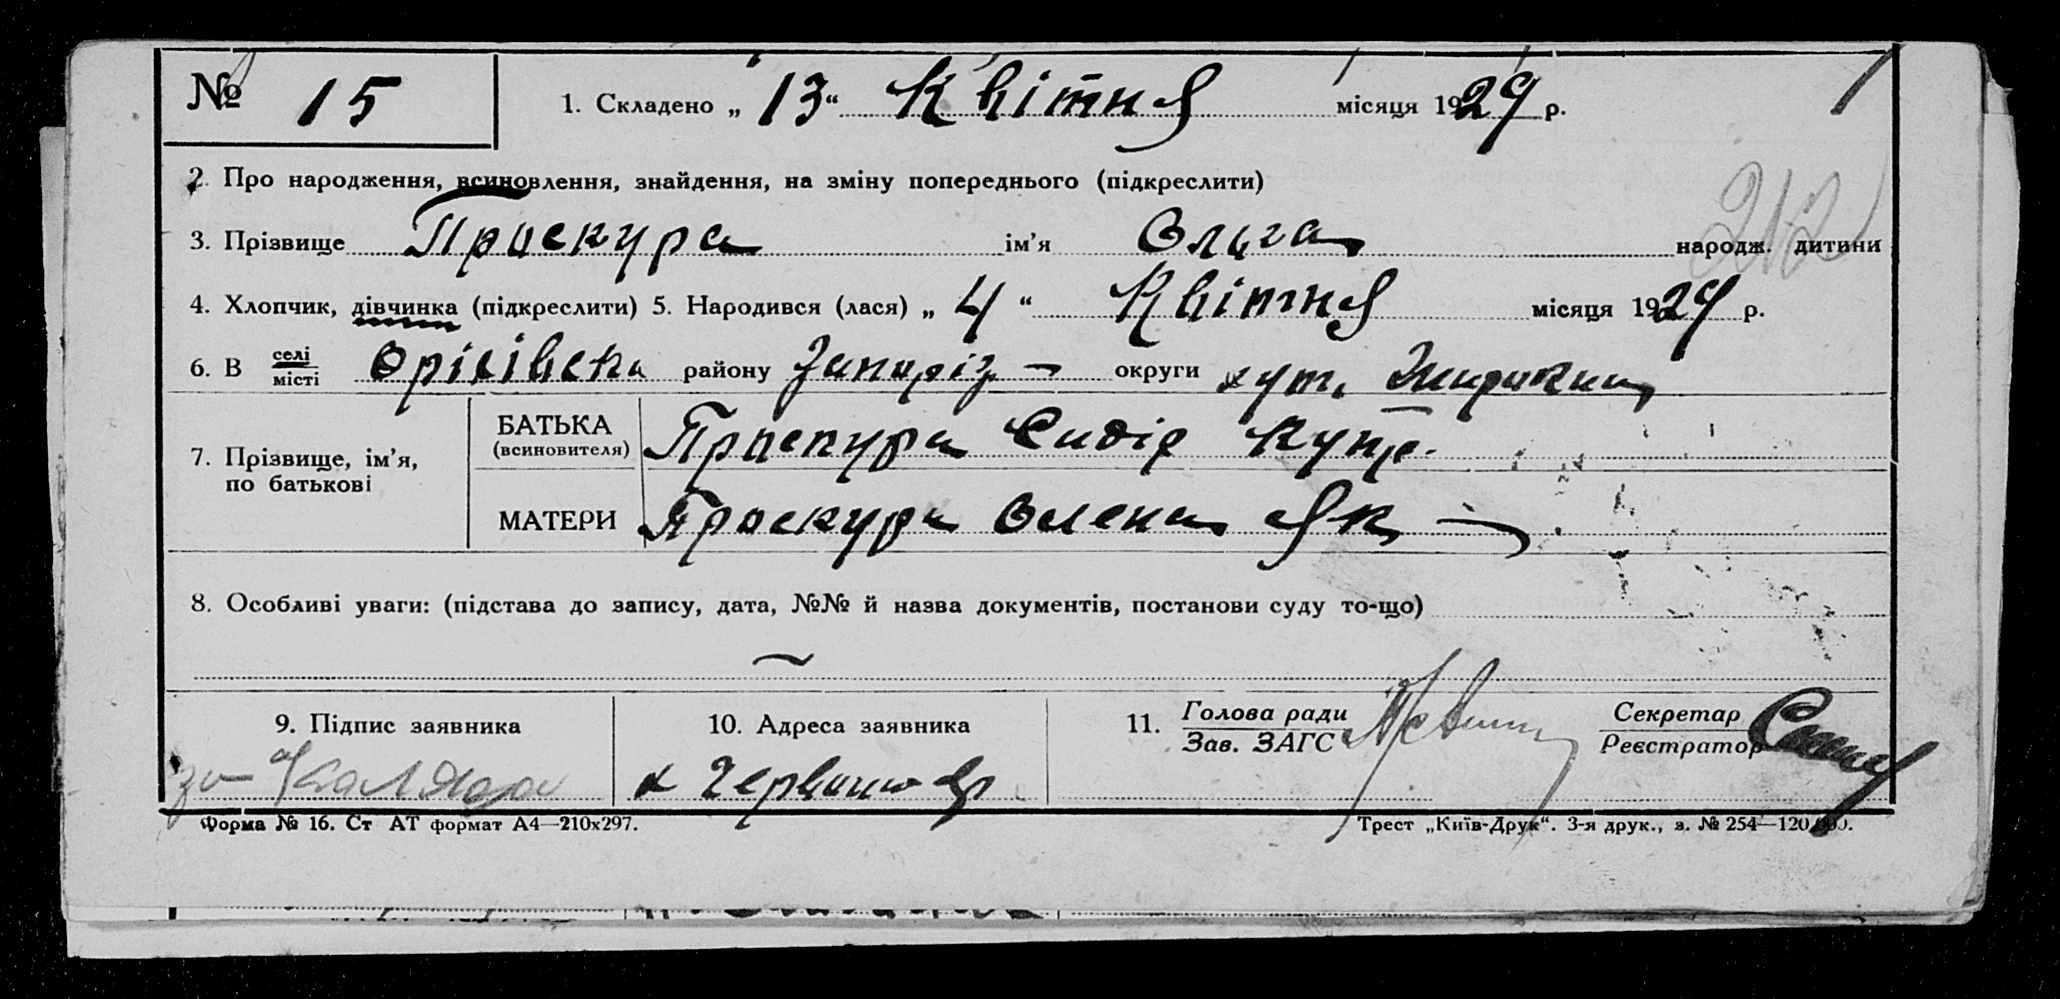 № 15 1. Складено „ 13 “ Квітня місяця 1929 р.
212
2. Про народження, всиновлення, знайдення, на зміну попереднього (підкреслити)
3. Прізвище Проскура ім’я Ольга народж. дитини
4. Хлопчик, дівчинка (підкреслити) 5. Народився (лася) „ 4 “ Квітня місяця 1929 р.
6. В селі місті Оріхівськ району Запоріз округи хут.
7. Прізвище, ім’я, по батькові
БАТЬКА (всиновителя) Проскура Сидір Купр.
МАТЕРИ Проскура Олена Як
8. Особливі уваги: (підстава до запису, дата, №№ й назва документів, постанови суду то-що)
9. Підпис заявника 10. Адреса заявника 11. Голова ради Зав. ЗАГС Секретар Реєстратор
за
Форма № 16. Ст АТ формат А4—210x297. Трест „Київ-Друк“. 3-я друк., з. № 254—120.000.